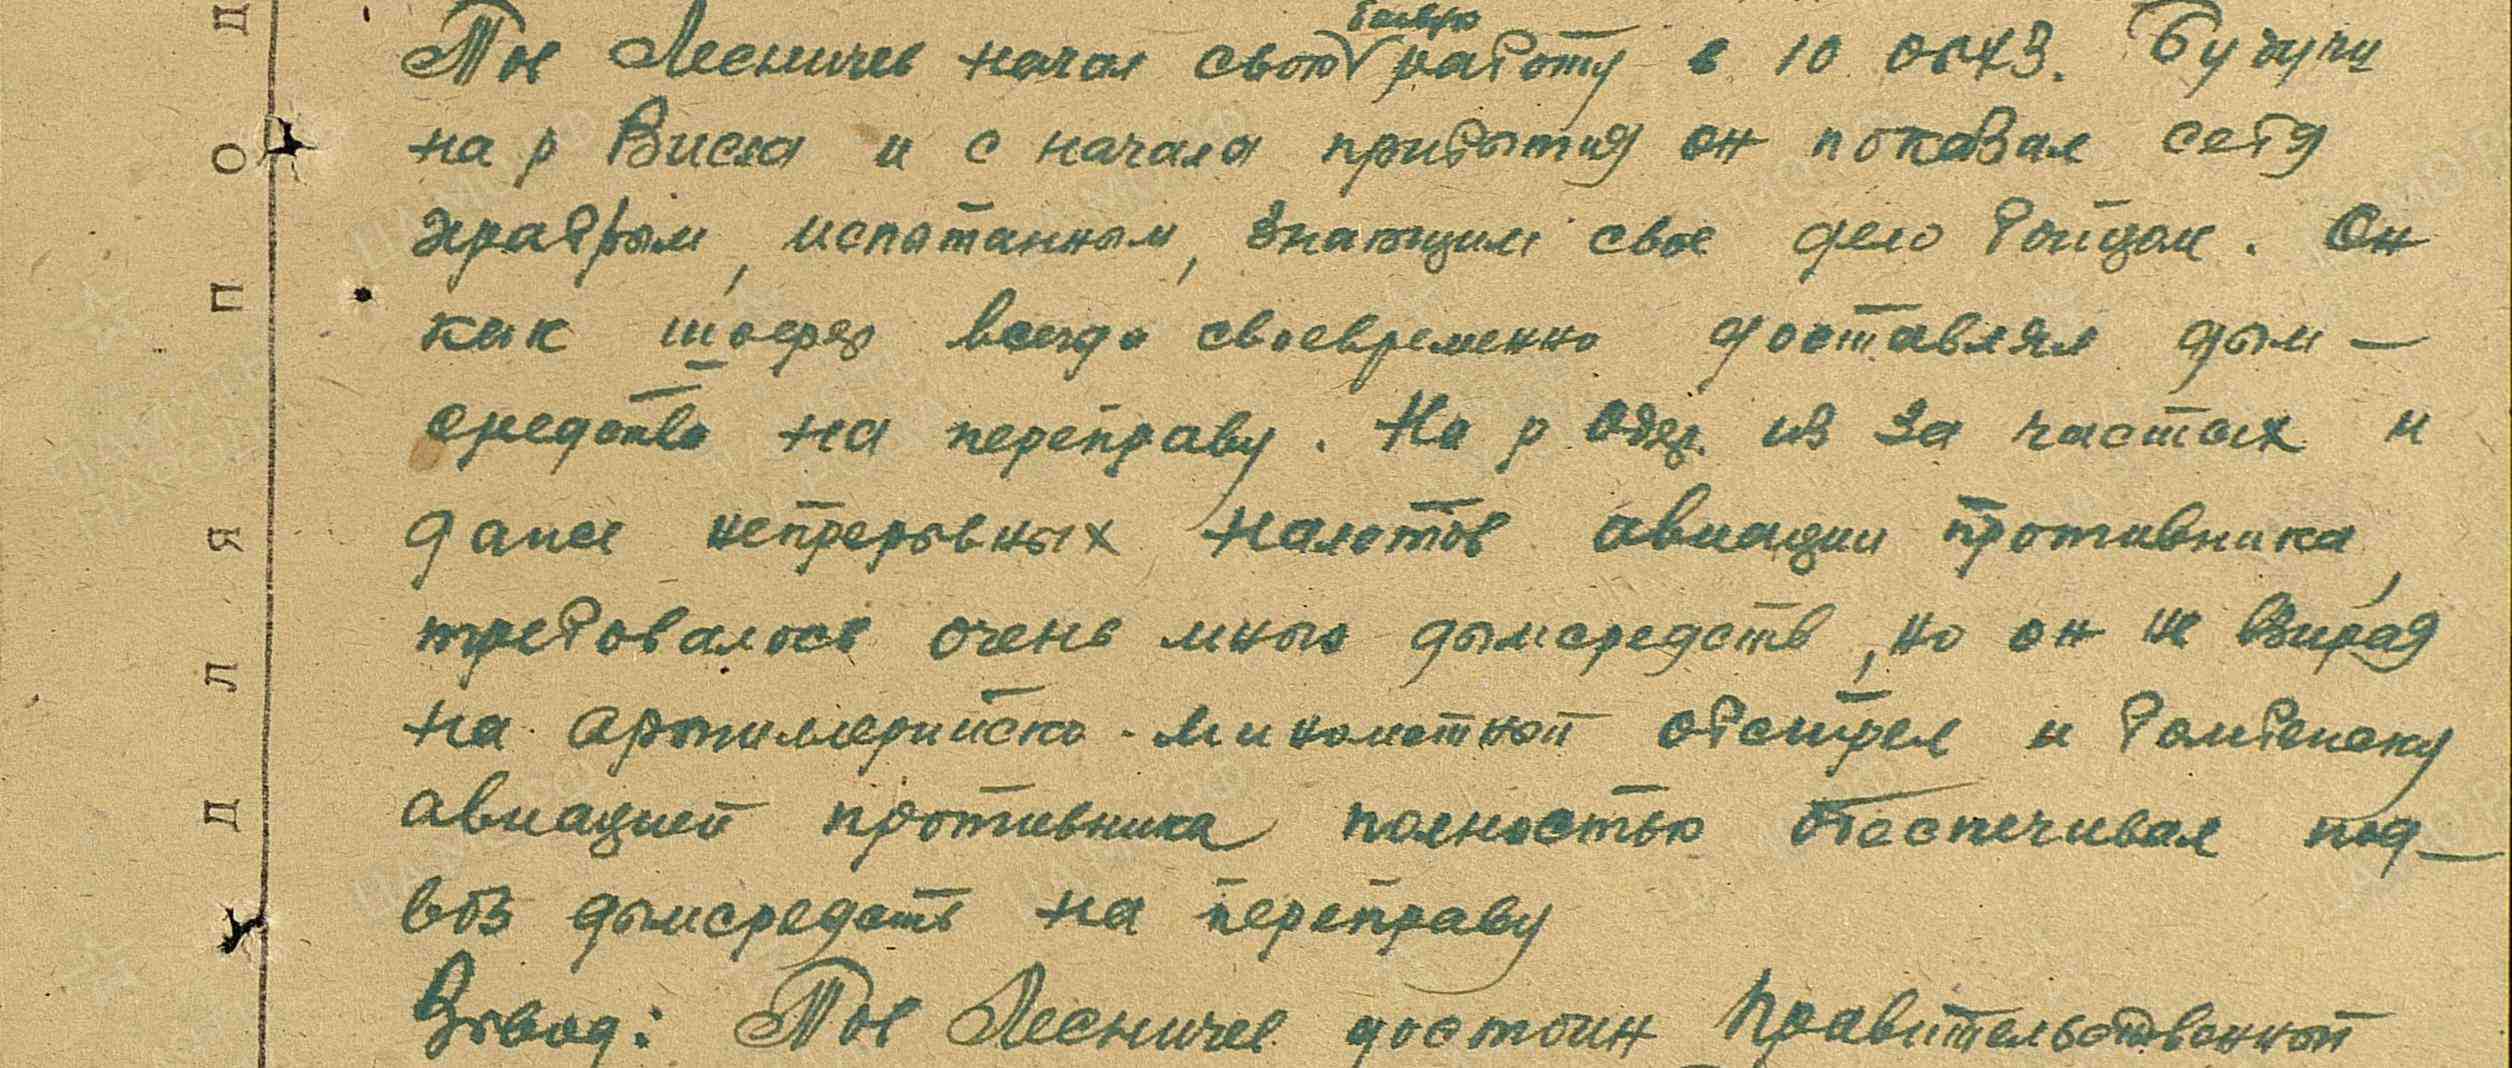 Тов Лесничев начал свою боевую работу в 10 обхз. Будучи
на р Висла и с начала прибытия он показал себя
храбрым, испытанным, знающим свое дело бойцом. Он
как шофер всегда своевременно доставлял дым-
средства на переправу. На р Одер. из за частых и
даже непрерывных налетов авиации противника,
требовалось очень много дымсредств, но он не взирая
на артиллерийско-минометной обстрел и бомбежку
авиацией противника полностью обеспечивал под-
воз дымсредств на переправу
Вывод: Тов Лесничев достоин Правительственной
Д
О
П
Я
Л
Д